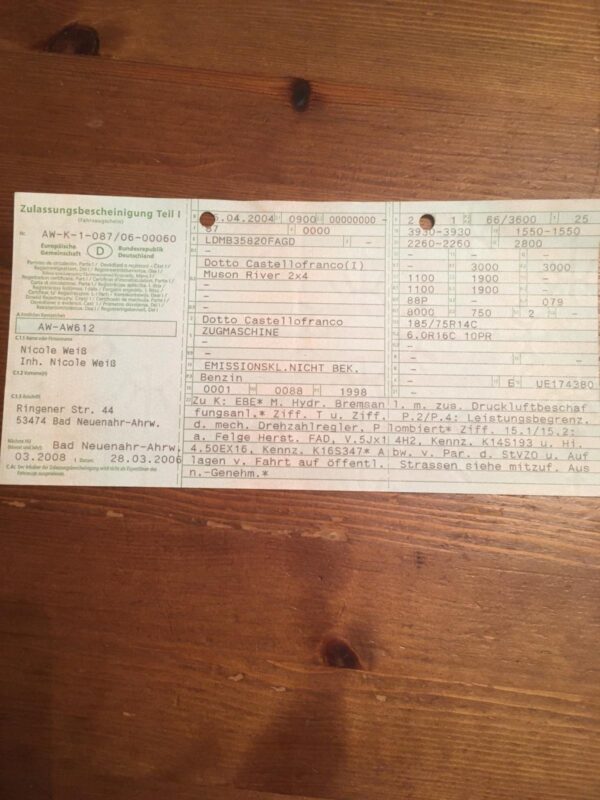 Zulassungsbescheinigung Teil I
(Fahrzeugschein)
Nr. AW-K-1-087/06-00060
Europäische Gemeinschaft
D
Bundesrepublik Deutschland
A Amtliches Kennzeichen
AW-AW612
C.1.1 Name oder Firmenname
Nicole Weiß
Inh. Nicole Weiß
C.1.2 Vorname(n)
C.1.3 Anschrift
Ringener Str. 44
53474 Bad Neuenahr-Ahrw.
Nächste HU
Bad Neuenahr-Ahrw.
03.2008
28.03.2006
.04.2004 0900 00000000 -
87 0000
LDMB35820FAGD -
-
Dotto Castellofranco(I)
Muson River 2x4
-
-
Dotto Castellofranco
ZUGMASCHINE
-
-
EMISSIONSKL.NICHT BEK.
Benzin
0001 0088 1998
2 1 66/3600 25
3930-3930 1550-1550
2260-2260 2800
- -
- 3000 3000
1100 1900 -
1100 1900 -
88P 079
8000 750 2 -
185/75R14C
6.0R16C 10PR
-
-
- 6 UE174380
Zu K: EBE* M. Hydr. Bremsanl. m. zus. Druckluftbeschaf
fungsanl.* Ziff. T u. Ziff. P.2/P.4: Leistungsbegrenz.
d. mech. Drehzahlregler, Plombiert* Ziff. 15.1/15.2:
a. Felge Herst. FAD, V.5Jx14H2, Kennz. K14S193 u. Hi.
4.50EX16, Kennz. K16S347* Abw. v. Par. d. StVZO u. Auf
lagen v. Fahrt auf öffentl. Strassen siehe mitzuf. Aus
n.-Genehm.*